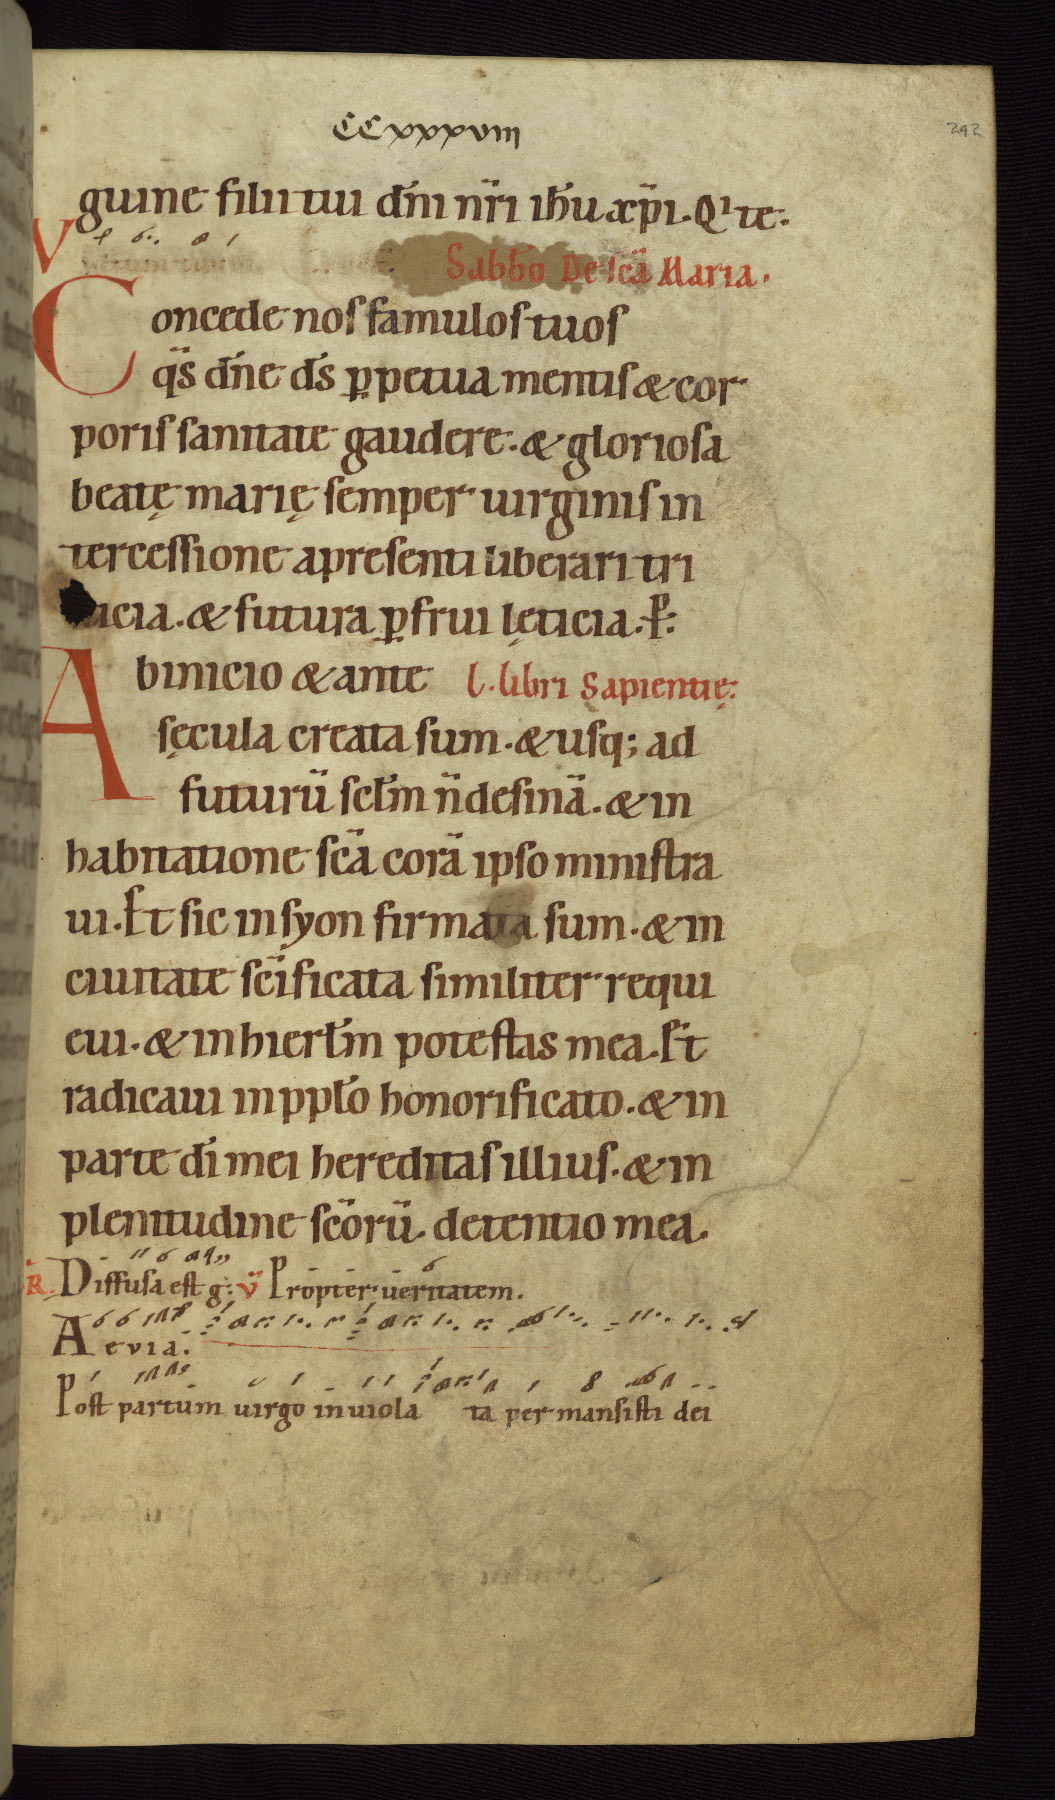 CCxxxviii
242
guine filii tui dñi nr̄i ih̄u xp̄i. Qⁱ te.
V
Sabb̄o De sc̄a Maria.
Concede nos famulos tuos
qs̄ dn̄e ds̄ ꝑpetua mentis & cor
poris sanitate gaudere. & gloriosa
beatę marię semper uirginis in
tercessione apresenti liberari tri
ticia. & futura ꝑfrui lęticia. P̄:
Abinicio & ante l. libri Sapientię:
sęcula creata sum. & usq; ad
futurū scl̄m n̄ desinā. & in
habitatione sc̄a corā ipso ministra
ui. Et sic in syon firmata sum. & in
ciuitate sc̄ificata similiter requi
eui. & in hierl̄m potestas mea. Et
radicaui in ppl̄o honorificato. & in
parte dī mei hereditas illius. & in
plenitudine sc̄orū detentio mea.
R̄. Diffusa est g: V̄ Propter ueritatem.
Aeviā.
Post partum uirgo inuiola ta permansisti dei